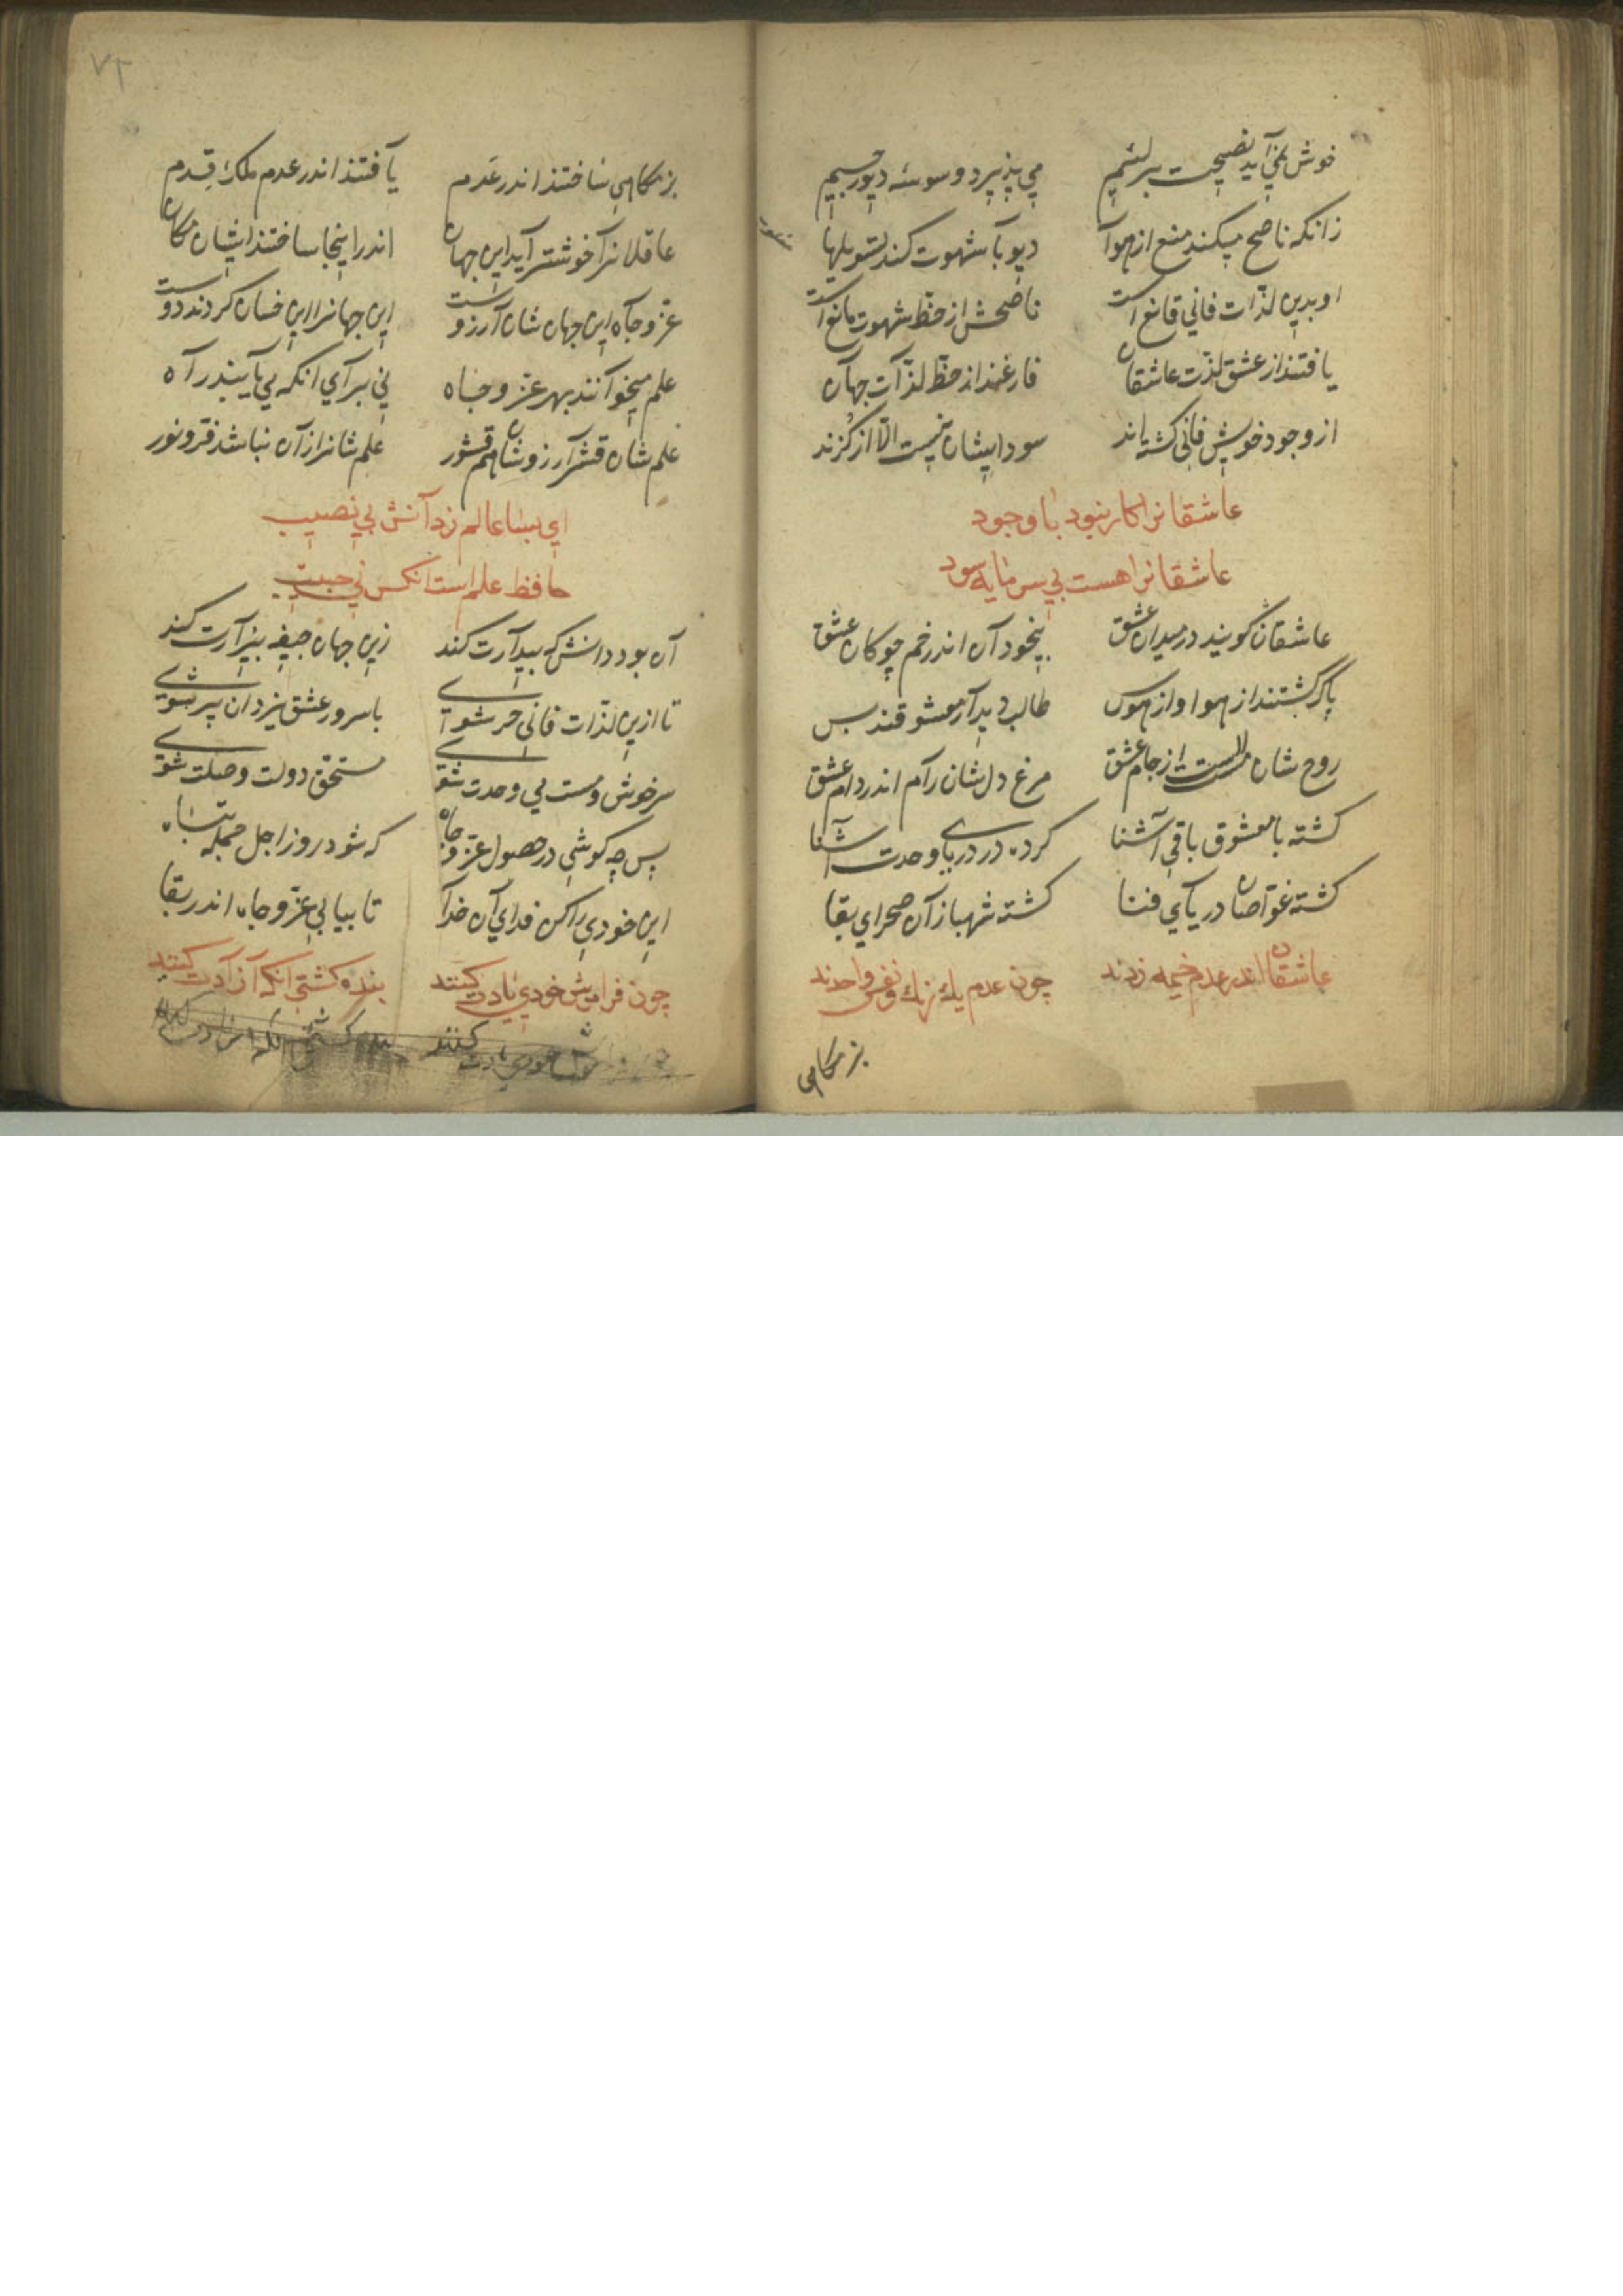 خوش نمی آید نصیحت بر لئیم می پذیرد وسوسه دیو رجیم
زانکه ناصح میکند منع از هوا دیو با شهوت کند تسویلها
او بدین لذّات فانی قانع است ناصحش از حظّ شهوت مانع است
یافتند از عشق لذّت عاشقان فارغند از حظّ لذّات جهان
از وجود خویش فانی کشته اند سود ایشان نیست الّا از کزند
عاشقانرا کار نبود با وجود
عاشقانرا هست بی سرمایه سود
عاشقان کویند در میدان عشق بیخود آن اندر خم چوکان عشق
پاک کشتند از هوا و از هوس طالب دیدار معشوقند بس
روح شان مست از جام عشق مرغ دل شان رام اندر دام عشق
کشته با معشوق باقی آشنا کرده در دریای وحدت آشنا
کشته غوّاصان دریای فنا کشته شهبازان صحرای بقا
عاشقان اندر عدم خیمه زدند چون عدم یك رنك و نفس واحدند
بزمکاهی
۷۲
بزمکاهی ساختند اندر عَدم یافتند اندر عدم ملك قِدم
عاقلانرا خوشتر آید این جهان اندر اینجا ساختند ایشان مکان
عزّ و جاه این جهان شان آرزوست این جهانرا این خسان کردند دوست
علم میخوانند بهر عزّ و جاه نی برای انکه می یابند راه
علم شان قشر آرزو شان هم قشور علم شانرا زان نباشد فرّ و نور
ای بسا عالم ز دانش بی نصیب
حافظ علم است انکس نی حبیب
آن بود دانش که بیدارت کند زین جهان جیفه بیزارت کند
تا ازین لذّات فانی حر شوی با سرور عشق یزدان پر شوی
سرخوش و مست می وحدت شوی مستحق دولت وصلت شوی
پس چه کوشی در حصول عزّ و جاه که شود روز اجل جمله تباه
این خودی را کن فدای آن خدا تا بیابی عزّ و جاه اندر بقا
چون فرامش خودی یادت کنند بنده کشتی انکه آزادت کنند
خودی یادت کنند بنده کشتی انکه ازادت کنند